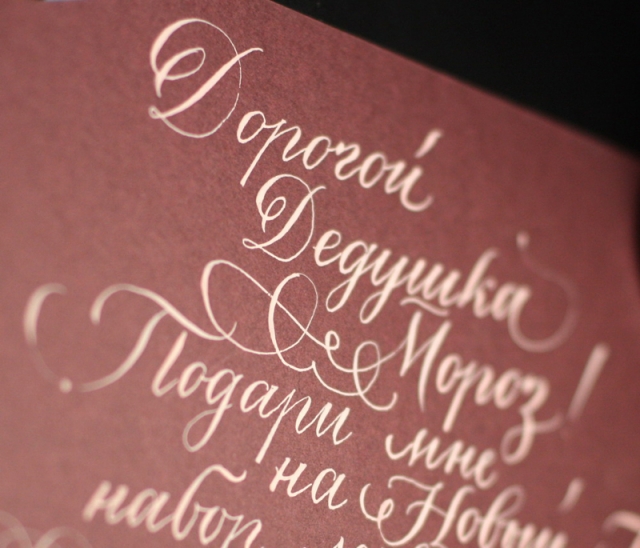 Дорогой
Дедушка
Мороз!
Подари мне
на Новый
набор